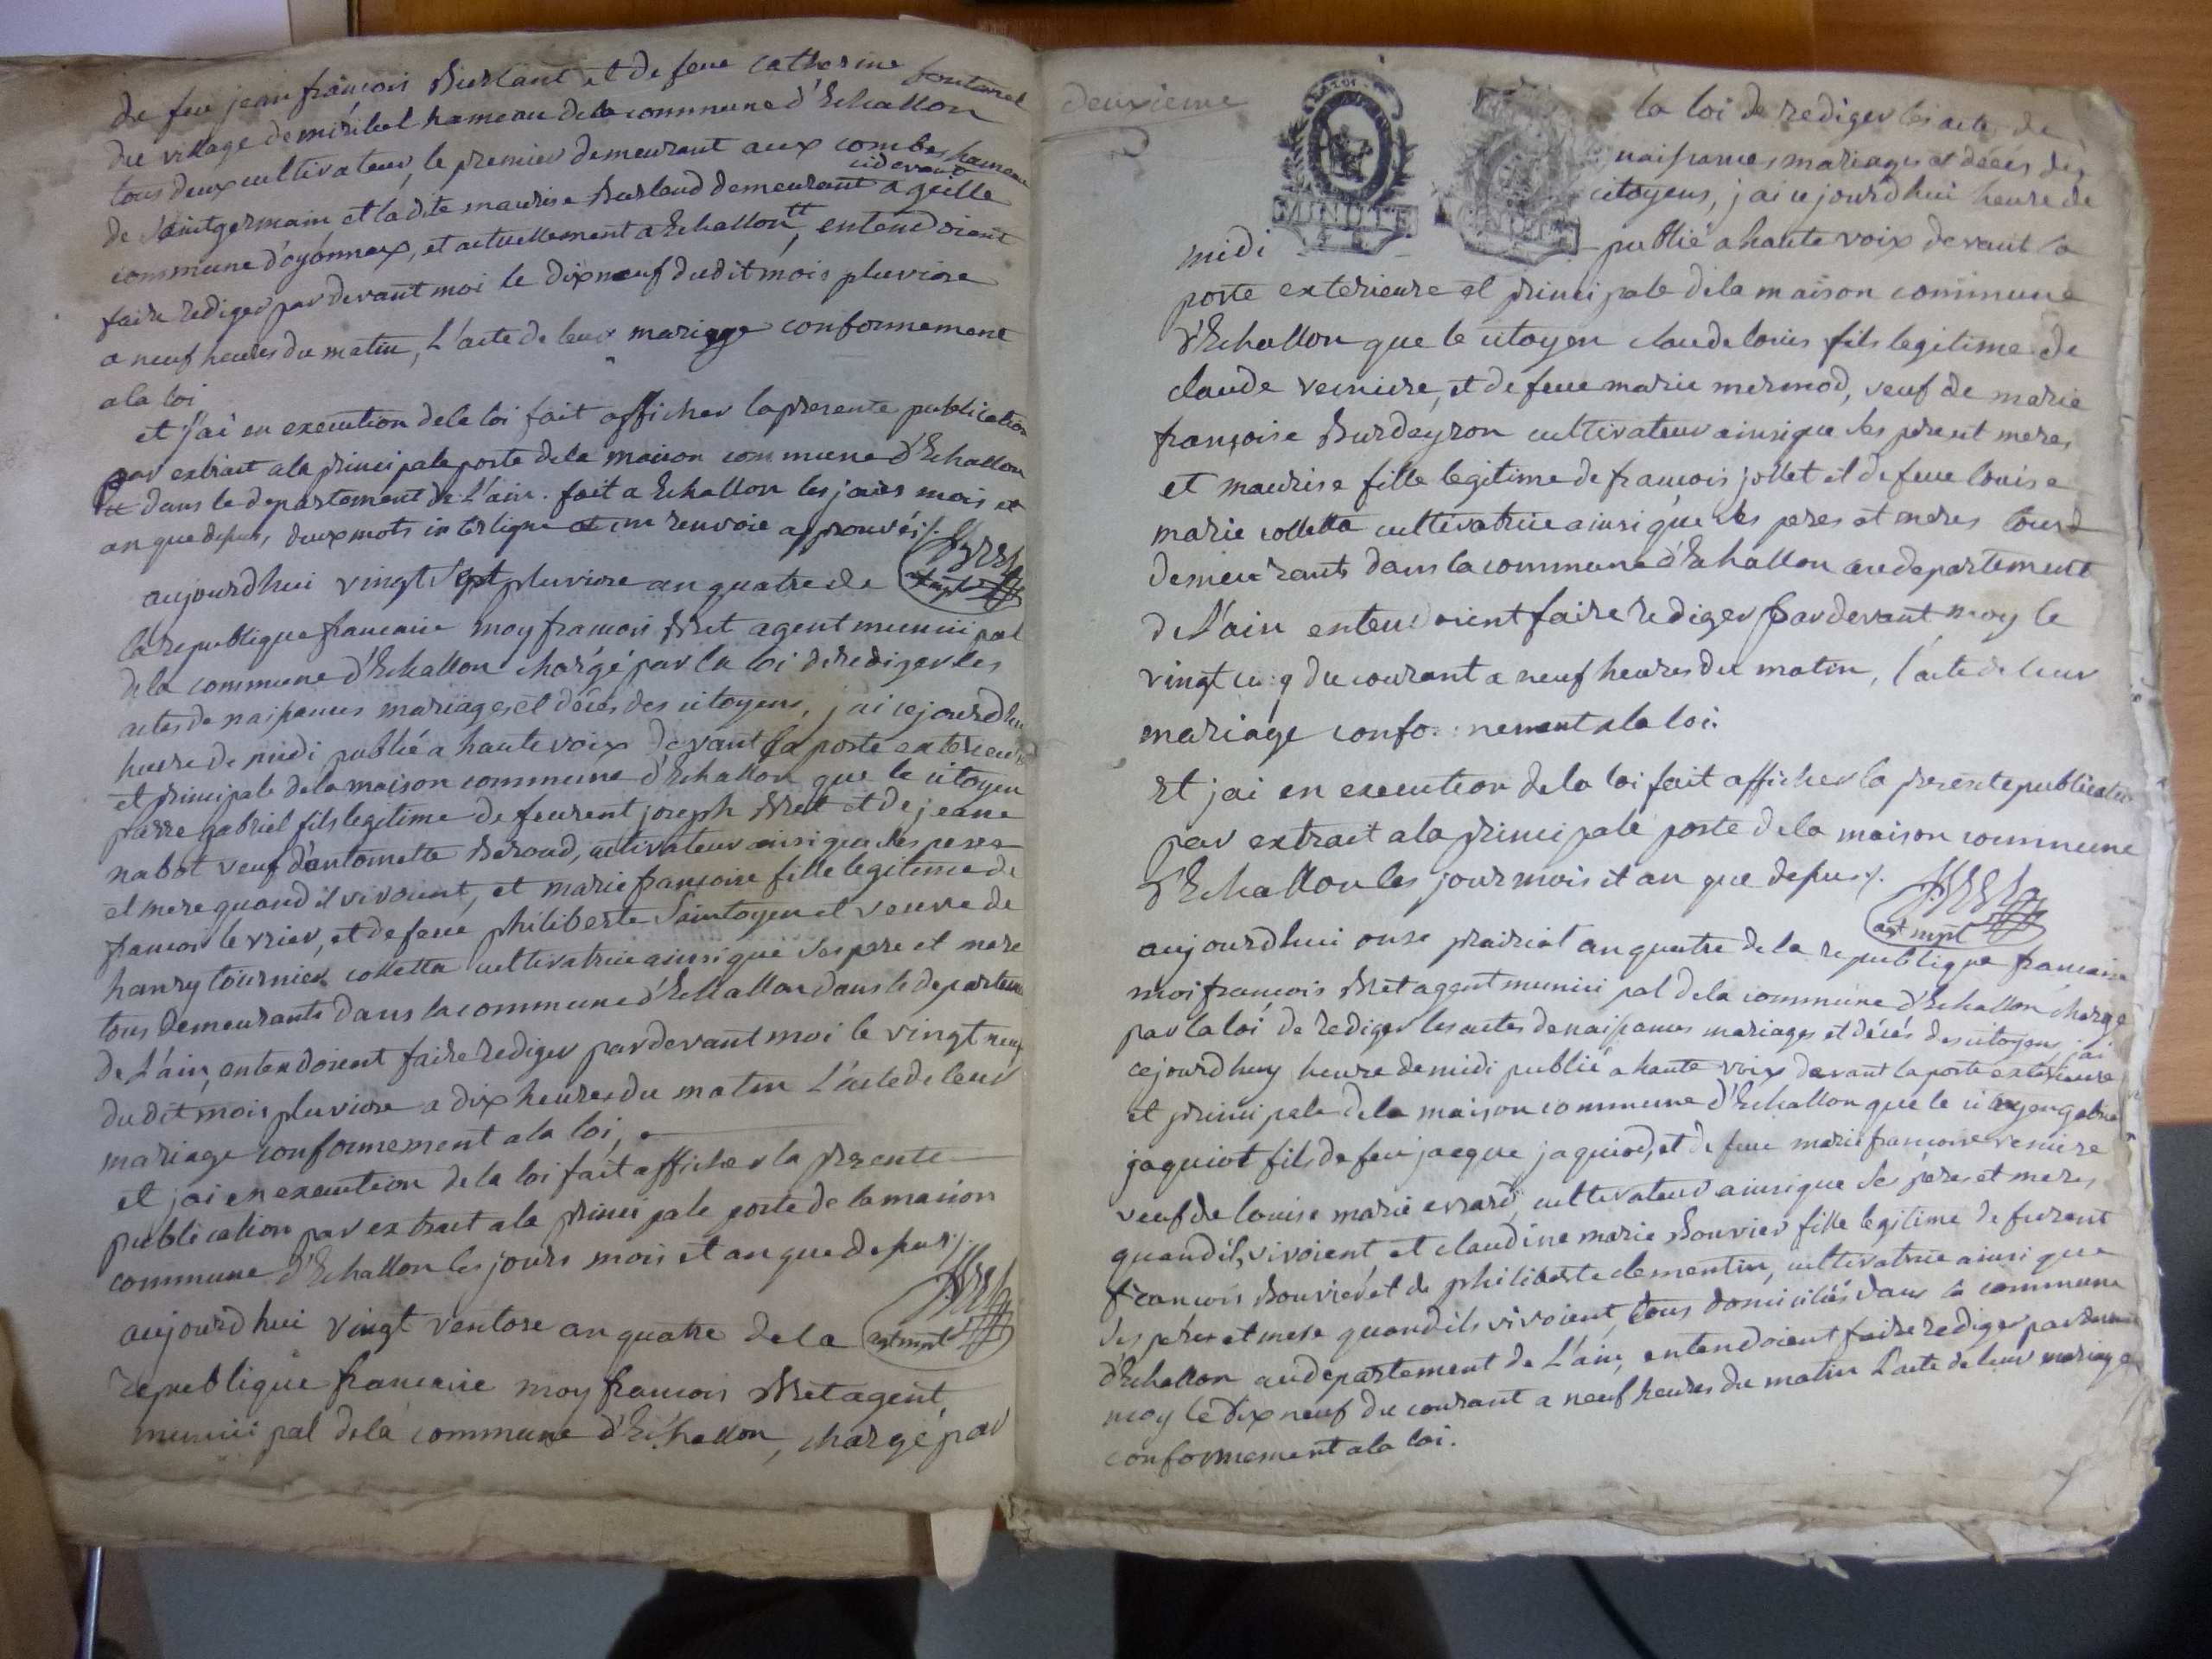 de feu jean françois Burlant et de feue catherine fontanel
du village de miribel hameau de la commune d'Echallon
tous deux cultivateur, le premier demeurant aux combes hameau
cidevant
de Saint germain, et la dite maurise Burland demeurant a geille
commune d'oyonnax, et actuellement a Echallon, entendoient
faire rediger par devant moi le dix neuf du dit mois pluviose
a neuf heures du matin, L'acte de leur mariage conformement
a la loi
et j'ai en execution de la loi fait afficher la presente publication
par extrait a la principale porte de la maison commune d'Echallon
dans le departement de L'ain. fait a Echallon les jours mois et
an que depus, deux mots interligne et un renvoie approuvés
aujourd'hui vingt Sept pluviose an quatre de
la republique francaise moy francois Bret agent municipal
de la commune d'Echallon chargé par la loi de rediger les
actes de naissances mariages et décés des citoyens, j'ai cejourd'hui
heure de midi publié a haute voix devant la porte exterieure
et principale de la maison commune d'Echallon que le citoyen
pierre gabriel fils legitime de feurent joseph Bret et de jeane
nabot veuf d'antoinette Beroud, cultivateur ainsi que ses peres
et mere quand il vivoient, et marie françoise fille legitime de
francois levrier, et de feue philiberte Saintoyen et veuve de
hanry tournier colletta cultivatrice ainsi que ses pere et mere
tous demeurants dans la commune d'Echallon dans le departement
de L'ain, entendoient faire rediger par devant moi le vingt neuf
du dit mois pluviose a dix heures du matin L'acte de leur
mariage conformement a la loi,
et j'ai en execution de la loi fait afficher la presente
publication par extrait a la principale porte de la maison
commune d'Echallon les jours mois et an que depus
agt mpl
aujourd'hui vingt ventose an quatre de la
republique francaise moy francois Bret agent
municipal de la commune d'Echallon, chargé par
deuxieme
MINUTE
la loi de rediger les acte de
naissances mariages et décés des
citoyens, j'ai cejourd'hui heure de
midi publié a haute voix devant la
porte exterieure et principale de la maison commune
d'Echallon que le citoyen claude louis fils legitime de
claude verniere, et de feue marie mermod, veuf de marie
françoise Burdeyron cultivateur ainsi que ses pere et meres,
et maurise fille legitime de francois jollet et de feue louise
marie colletta cultivatrice ainsi que ses peres et meres tous
demeurants dans la commune d'Echallon au departement
de L'ain entendoient faire rediger par devant moy le
vingt cinq du courant a neuf heures du matin, l'acte de leur
mariage conformement a la loi.
Et j'ai en execution de la loi fait afficher la presente publication
par extrait a la principale porte de la maison commune
d'Echallon les jour mois et an que depus
agt mpl
aujourd'hui onse prairial an quatre de la republique francaise
moi françois Bret agent municipal de la commune d'Echallon, chargé
par la loi de rediger les actes de naissances mariages et décés des citoyens j'ai
cejourd'huy heure de midi publié a haute voix devant la porte exterieure
et principale de la maison commune d'Echallon que le citoyen gabriel
jaquiot fils de feu jacque jaquiod, et de feue marie francoise verniere
veuf de louise marie evrard, cultivateur ainsi que ses peres et meres
quand ils vivoient et claudine marie Bouvier fille legitime de feurent
francois Bouvier et de philiberte clementin, cultivatrice ainsi que
ses peres et mere quand ils vivoient, tous domiciliés dans la commune
d'Echallon au departement de L'ain, entendoient faire rediger par devant
moy le dix neuf du courant a neuf heures du matin L'acte de leur mariage
conformement a la loi.